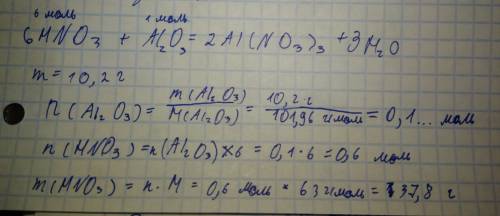 6 моль 1 моль
6HNO3 + Al2O3 = 2Al(NO3)3 + 3H2O
m = 10,2 г
n(Al2O3) = m(Al2O3) / M(Al2O3) = 10,2 г / 101,96 г/моль = 0,1... моль
n(HNO3) = n(Al2O3) × 6 = 0,1 · 6 = 0,6 моль
m(HNO3) = n · M = 0,6 моль * 63 г/моль = 37,8 г